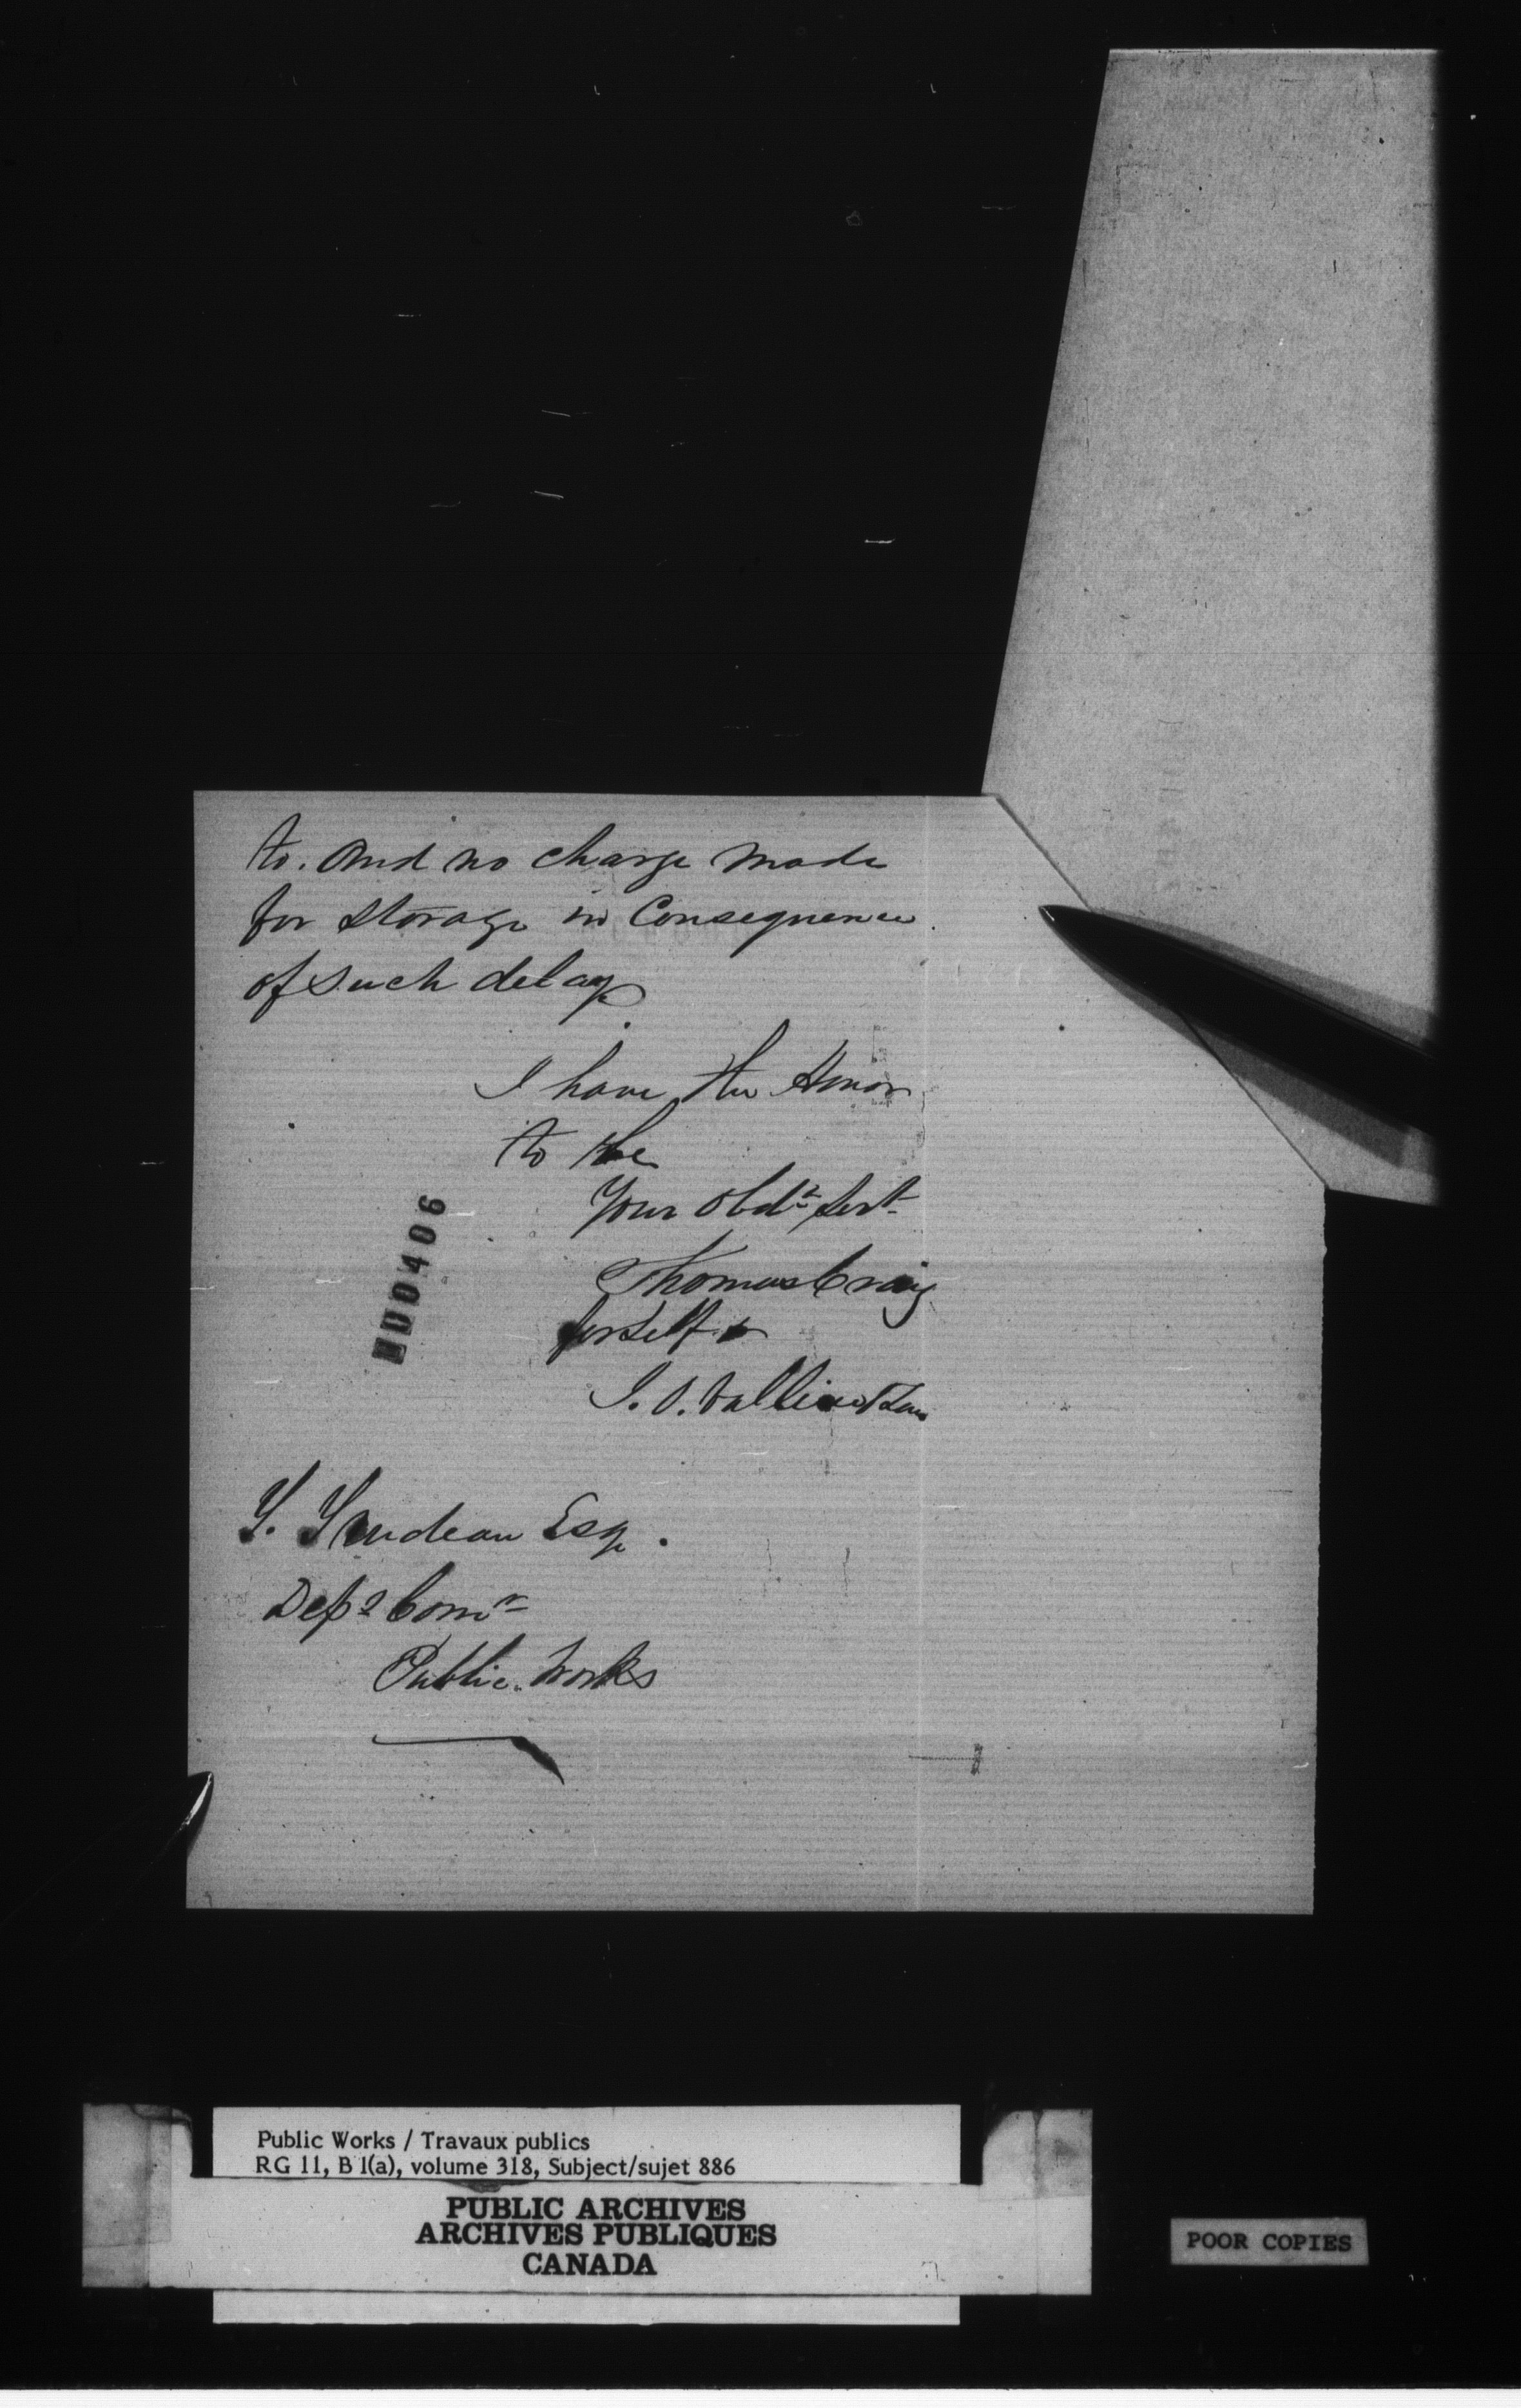 to. And no charge made
for storage in Consequence
of such delay
I have the Honor
to be
Your obdt Servt
Thomas Craig
for self &
T. Trudeau Esq.
Depy Comr
Public Works
00406
Public Works / Travaux publics
RG 11, B 1(a), volume 318, Subject/sujet 886
PUBLIC ARCHIVES
ARCHIVES PUBLIQUES
CANADA
POOR COPIES